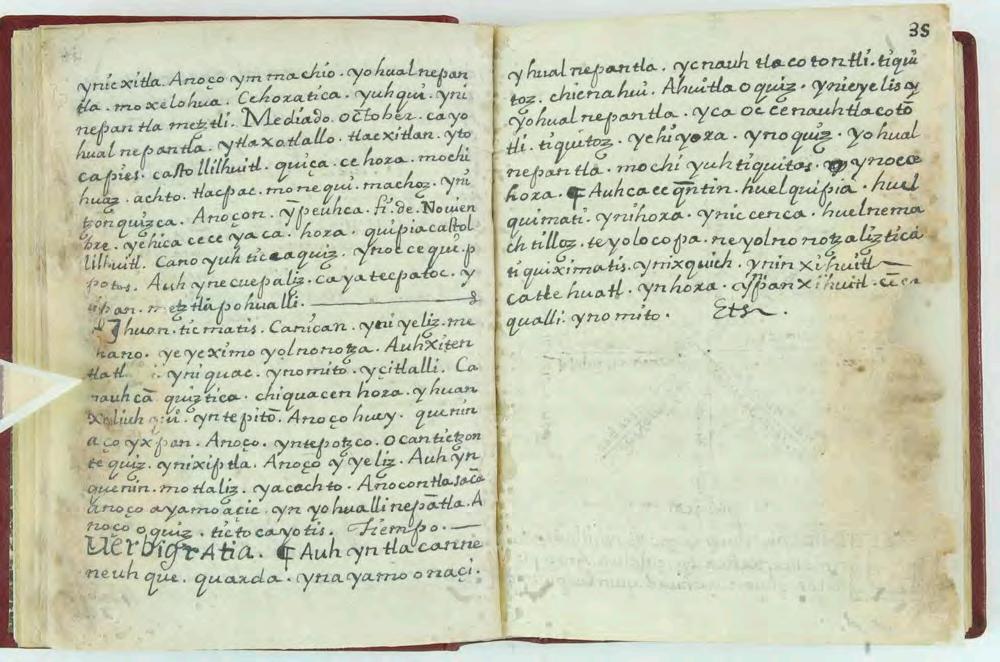 ynicxitla. Anoço ymmachio. yohualnepan
tla. moxelohua. Cehoratica. yuhqui. yni
nepantla metztli. Mediado. october. cayo
hualnepantla. ytlaxotlallo. tlacxitlan. yto
capies. castollilhuitl. quiça. cehora. mochi
huaz. achto. tlacpac. monequi. machoz. yni
tzonquizca. Anoçon. ypeuhca. fi. de. Nouien
bre. yehica cece yaca. hora. quipia castol
lilhuitl. Cano yuh ticcaquiz. ynoccequi. p
potos. Auh ynecuepaliz. cayatecpatoc. y
ipan. metztlapohualli.
Ihuan. ticmatis. Canican. yni yeliz. me
hano. yeyeximo yolnonotza. Auhxiten
yniquac. ynomito. ycitlalli. Ca
nauhcā quiztica. chiquacen hora. yhuan
yntepitō. Anoço huey. quenin
açoyxpan. Anoço. yntepotzco. Ocantictzon
tequiz. ynixiptla. Anoço yyeliz. Auh yn
quenin. motlaliz. yacachto. Anocontlasaca
anoço ayamo açic. yn yohuallinepātla. A
noço oquiz. tictocayotis. Tiempo.
UerbigrAtia. ¶ Auh yntla canne
neuhque. quarda. yna yamo onaçi.
35
yhualnepantla. ycnauh tlacotontli. tiqui
toz. chicnahui. Ahuitla oquiz. ynieyelis y
yohualnepantla. yca occenauhtlacotō
tli. tiquitoz. yehiyora. ynoquiz. yohual
nepantla. mochi yuhtiquitos. ynoce
hora. ¶ Auhcaceqn̄tin. huelquipia. huel
quimati. ynihora. ynic cenca. huelnema
chtilloz. teyolocopa. neyolnonotzaliztica
tiquiximatis. ynixquich. yninxihuitl
catlehuatl. ynhora. ypanxihuitl.
qualli. ynomito. Etsa.